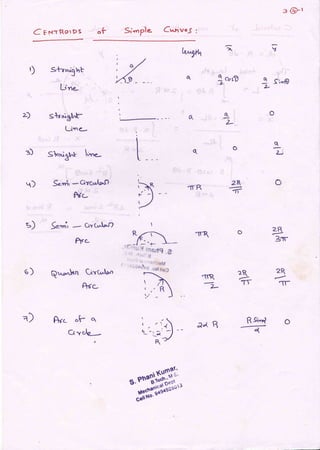 3 ⑤-1
CENTROIDS of Simple Curves :
length x̄ ȳ
1) Straight Line a θ a a/2 Cosθ a/2 Sinθ
2) Straight Line a a/2 0
3) Straight line a 0 a/2
4) Semi - Circular Arc R πR 2R/π 0
5) Semi - Circular Arc R πR 0 2R/3π
6) Quarter Circular Arc R πR/2 2R/π 2R/π
7) Arc of a Circle R 2αR R Sinα/α 0
S. Phani Kumar,
B.Tech., M.E.
Mechanical Dept
Cell No.